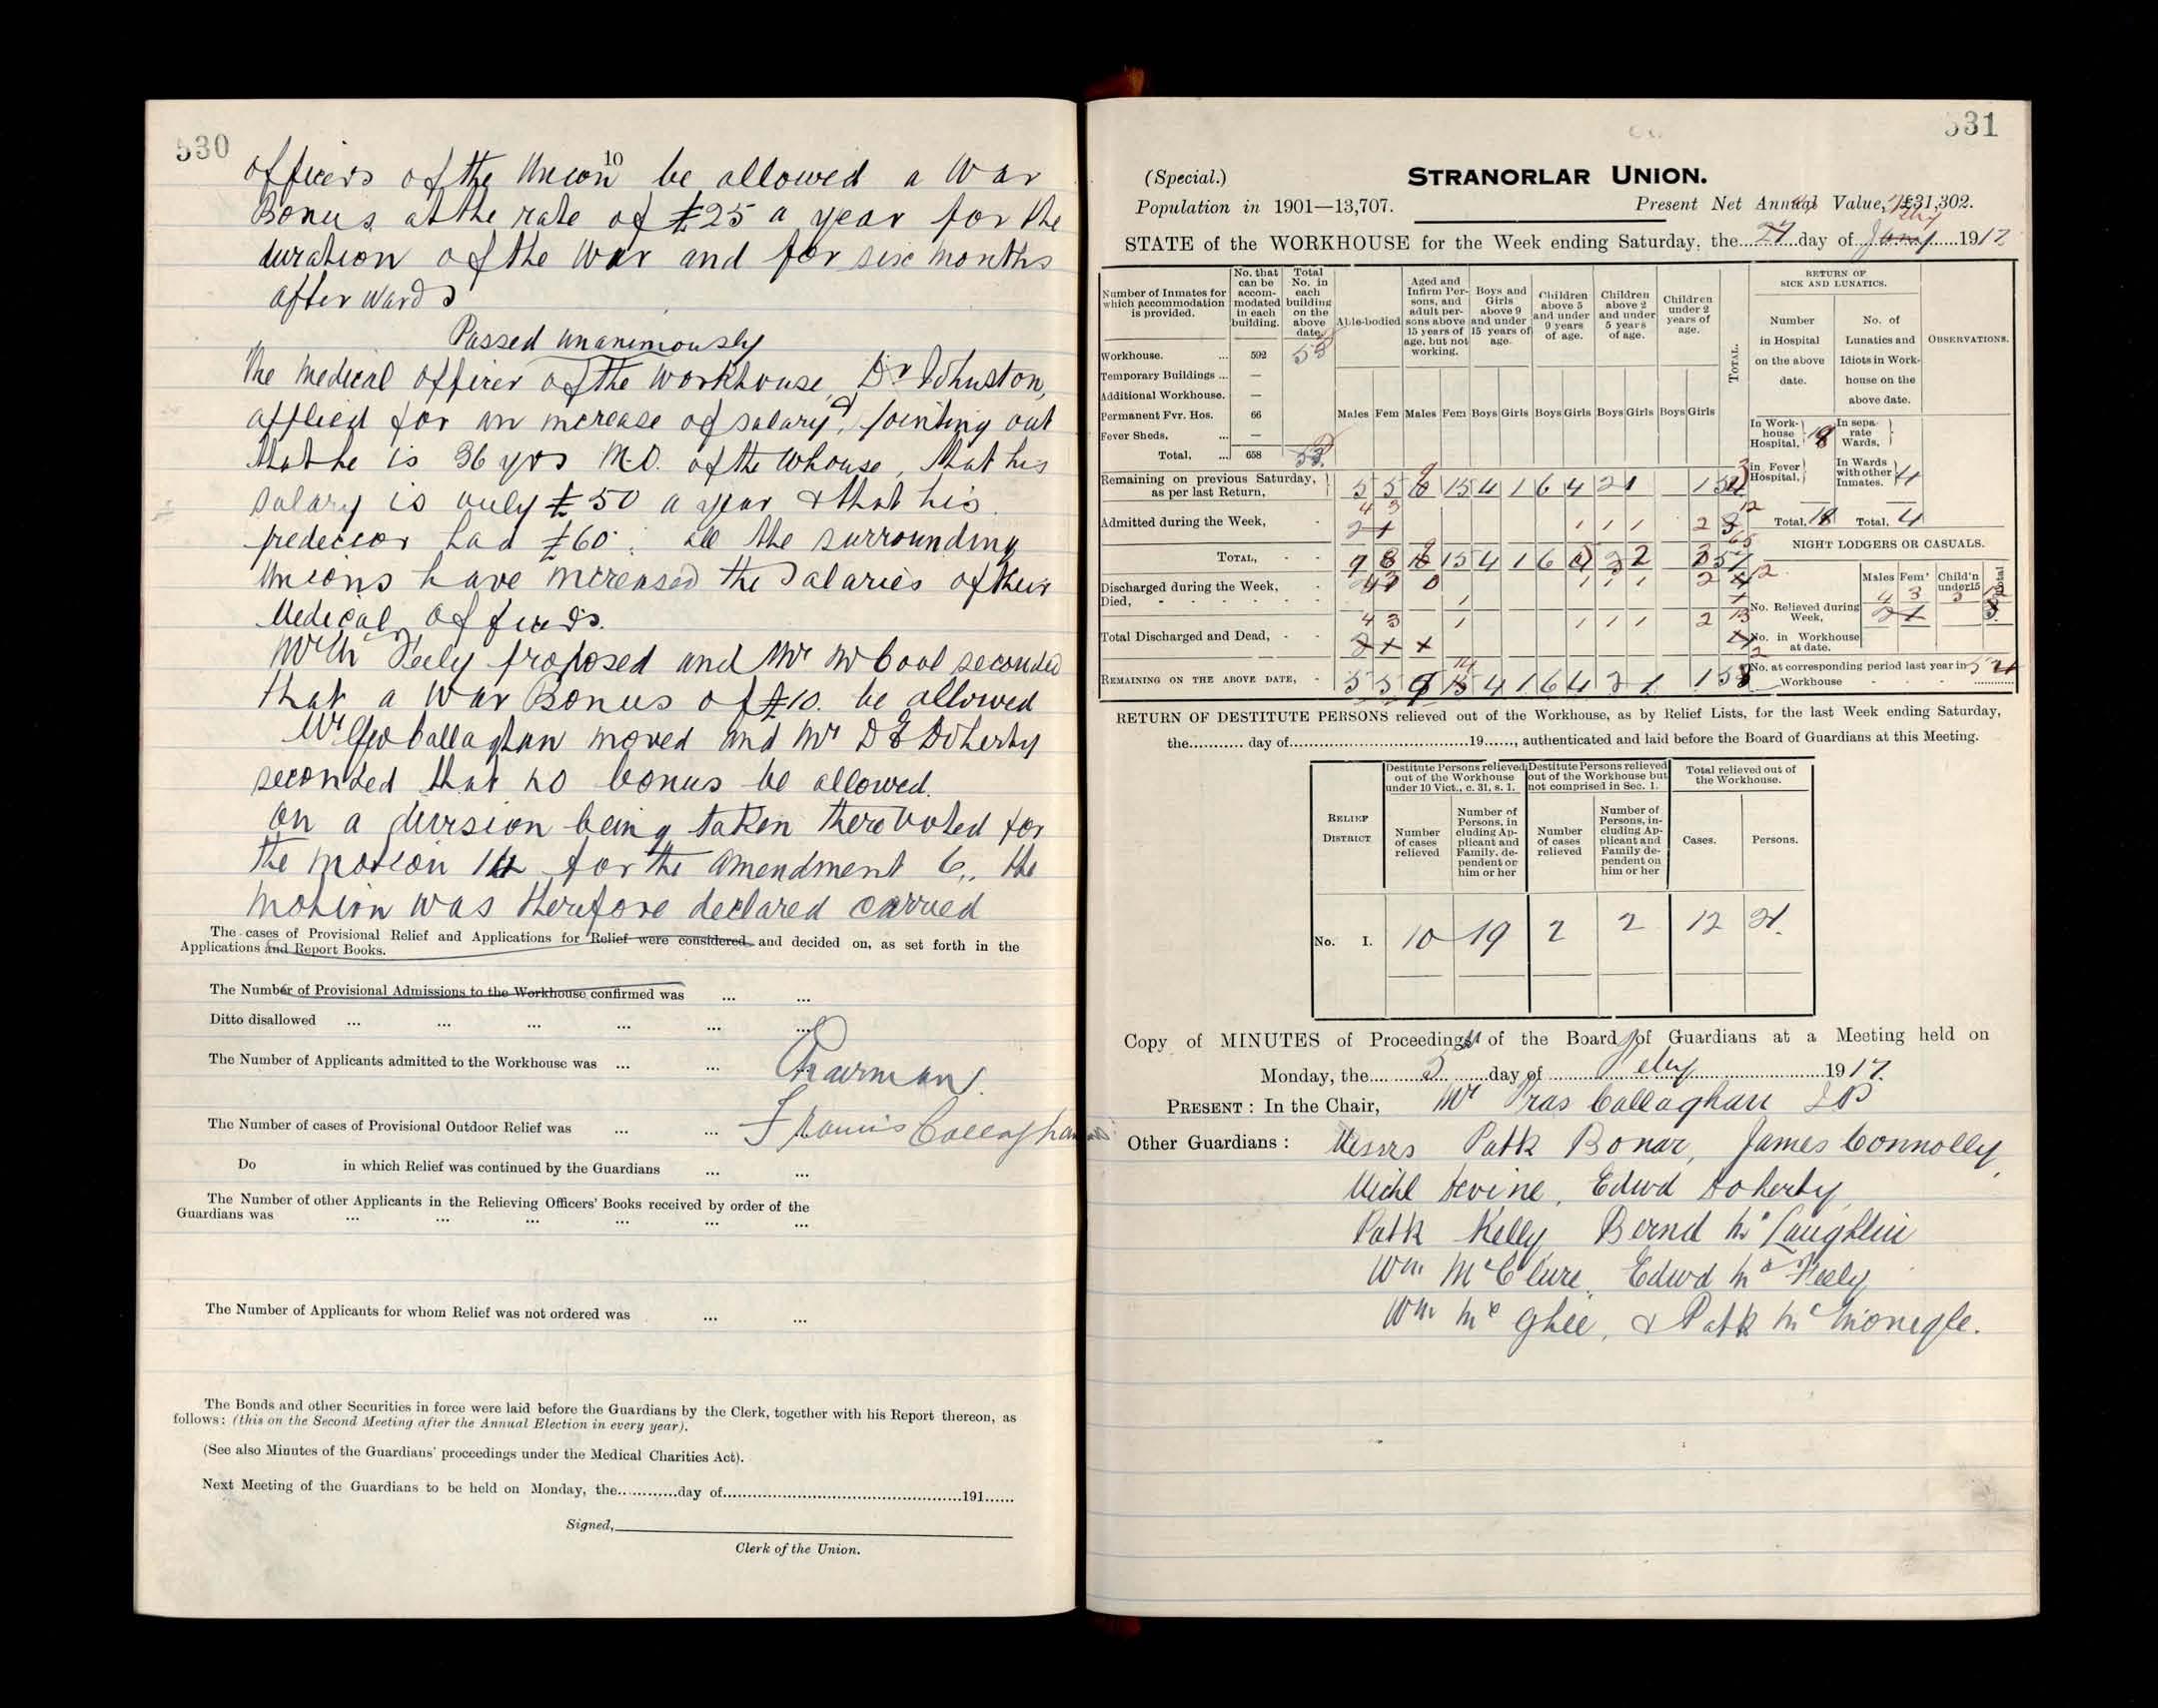 530
10
officers of the Union be allowed a War
Bonus at the rate of £25 a year for the
duration of the War and for six months
afterwards
Passed unanimously
The Medical Officer of the Workhouse, Dr Johnston,
applied for an increase of salary, pointing out
that he is 36 yrs M.O. of the Whouse, that his
salary is only £50 a year & that his
predecior had £60: all the surrounding
Unions have increased the Salaries of their
Medical Officers.
Mr Mc Feely proposed and Mr McCool seconded
that a War Bonus of £10. be allowed
Mr Geo Callaghan moved and Mr D E Doherty
seconded that no bonus be allowed.
On a division being taken there voted for
the motion 14 for the amendment 6,. the
motion was therefore declared carried
The cases of Provisional Relief and Applications for Relief were considered and decided on, as set forth in the
Applications and Report Books.
The Number of Provisional Admissions to the Workhouse confirmed was ... ...
Ditto disallowed ... ... ... ... ... ...
The Number of Applicants admitted to the Workhouse was ... ...
Chairman.
The Number of cases of Provisional Outdoor Relief was ... ...
Francis Callaghan
Do in which Relief was continued by the Guardians ... ...
The Number of other Applicants in the Relieving Officers' Books received by order of the
Guardians was ... ... ... ... ... ...
The Number of Applicants for whom Relief was not ordered was ... ...
The Bonds and other Securities in force were laid before the Guardians by the Clerk, together with his Report thereon, as
follows: (this on the Second Meeting after the Annual Election in every year).
(See also Minutes of the Guardians' proceedings under the Medical Charities Act).
Next Meeting of the Guardians to be held on Monday, the............day of..............................191......
Signed,
Clerk of the Union.
531
(Special.)
STRANORLAR UNION.
Population in 1901—13,707.
Present Net Annual Value, £31,302.
STATE of the WORKHOUSE for the Week ending Saturday, the day of Jany 1917
Number of Inmates for which accommodation is provided.
No. that can be accommodated in each building.
Total No. in each building on the above date.
Able-bodied
Aged and Infirm Persons, and adult persons above 15 years of age, but not working.
Boys and Girls above 9 and under 15 years of age.
Children above 5 and under 9 years of age.
Children above 2 and under 5 years of age.
Children under 2 years of age.
TOTAL.
RETURN OF SICK AND LUNATICS.
Number in Hospital on the above date.
No. of Lunatics and Idiots in Workhouse on the above date.
OBSERVATIONS.
Workhouse. ... 592
Temporary Buildings ... —
Additional Workhouse. —
Permanent Fvr. Hos. 66
Fever Sheds, ... —
Total, ... 658
Males Fem Males Fem Boys Girls Boys Girls Boys Girls Boys Girls
In Workhouse Hospital, 18
In separate Wards,
in Fever Hospital,
In Wards with other Inmates. 4
Total, 18 Total, 4
Remaining on previous Saturday, as per last Return, 5 5 15 4 1 6 4 2 1 1
Admitted during the Week, 4 3 1 1 1 2 12
TOTAL, 9 8 15 4 1 6
NIGHT LODGERS OR CASUALS.
Males Fem' Child'n under 15 Total
Discharged during the Week, 1 1 1 2 12
Died, 1
No. Relieved during Week, 4 3
Total Discharged and Dead, 4 3 1 1 1 1 2 13
No. in Workhouse at date.
REMAINING ON THE ABOVE DATE, 5 5 9 14 4 1 6 4 2 1 1
No. at corresponding period last year in Workhouse
RETURN OF DESTITUTE PERSONS relieved out of the Workhouse, as by Relief Lists, for the last Week ending Saturday,
the........... day of..............................19......, authenticated and laid before the Board of Guardians at this Meeting.
RELIEF DISTRICT
Destitute Persons relieved out of the Workhouse under 10 Vict., c. 31, s. 1.
Destitute Persons relieved out of the Workhouse but not comprised in Sec. 1.
Total relieved out of the Workhouse.
Number of cases relieved
Number of Persons, including Applicant and Family, dependent on him or her
Number of cases relieved
Number of Persons, including Applicant and Family dependent on him or her
Cases.
Persons.
No. I. 10 19 2 2 12 21.
Copy of MINUTES of Proceedings of the Board of Guardians at a Meeting held on
Monday, the 5 day of Feby 1917.
PRESENT: In the Chair, Mr Fras Callaghan JP
Other Guardians: Messrs Patk Bonar, James Connolly,
Michl Devine, Edwd Doherty
Patk Kelly Bernd McLaughlin
Wm McClure, Edwd McFeely
Wm McGhee, & Patk McMonegle.